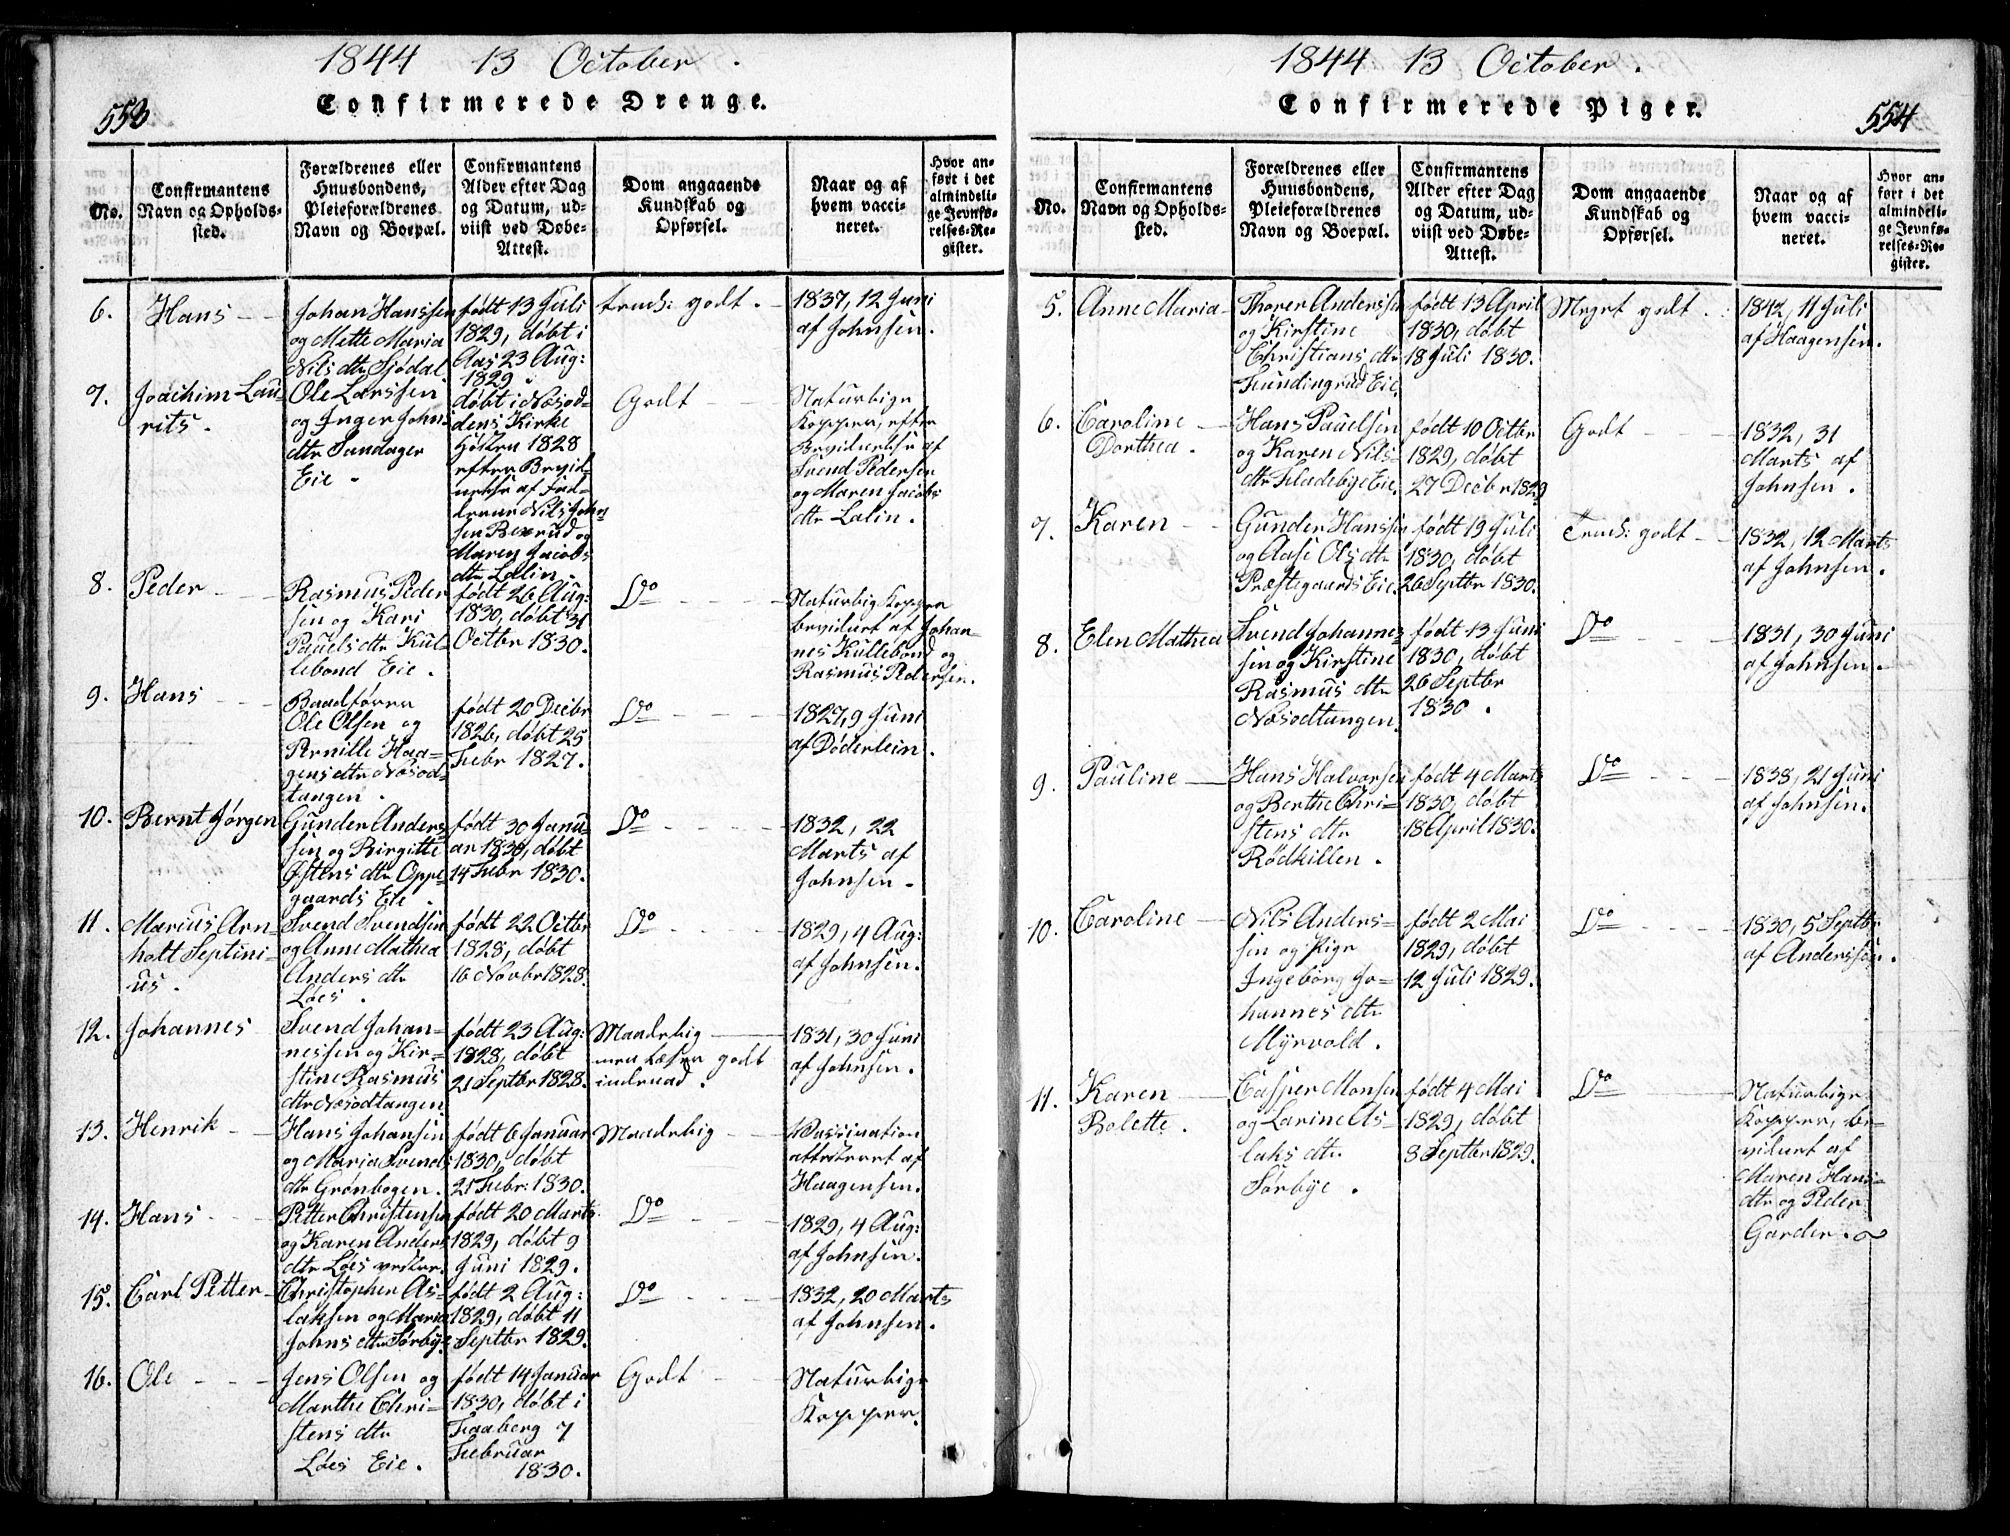 1844 13 October.
Confirmerede Drenge.
553
No.
Confirmantens
Navn og Opholds-
sted.
Forældrenes eller
Huusbondens,
Pleieforældrenes
Navn og Boepæl.
Confirmantens
Alder efter Dag
og Datum, ud-
viist ved Døbe-
Attest.
Dom angaaende
Kundskab og
Opførsel.
Naar og af
hvem vacci-
neret.
Hvor an-
ført i det
almindeli-
ge Jevnfø-
relses-Re-
gister.
6.
Hans
Johan Hanssen
og Mette Maria
Nils dtr Sjødal
født 13 Juli
1829, døbt i
Aas 23 Aug:
1829.
godt.
1837, 12 Juni
af Johnsen.
7.
Joachim Lau-
rits.
Ole Larssen
og Inger Johns
dtr Sundager
Eie.
døbt i Næsod-
dens Kirke
Høsten 1828
efter Bevid-
nelse af Fad-
derne Nils John-
sen Bexrud og
Maren Jacobs
dtr Lalin.
Godt
Naturlige
Kopper, efter
Bevidnelse af
Svend Pedersen
og Maren Jacobs
dtr Lalin.
8.
Peder
Rasmus Peder
sen og Kari
Pauels dtr Kul-
lebond Eie.
født 26 Aug:
1830, døbt 31
Octbr 1830.
Do
Naturlig Kopper
bevidnet af Johan-
nes Kullebond og
Rasmus Pedersen.
9.
Hans
Baadfører
Ole Olsen og
Pernille Haa-
gens dtr Næsod-
tangen.
født 20 Decbr
1826, døbt 25
Febr 1827.
Do
1827, 9 Juni
af Døderlein.
10.
Bernt Jørgen
Gunder Anders-
sen og Birgitte
Østens dtr Oppe-
gaards Eie.
født 30 Janu-
ar 1830, døbt
14 Febr 1830.
Do
1832, 22
Marts af
Johnsen.
11.
Marius Arn
holt Septimi-
us.
Svend Svendsen
og Anne Mathea
Anders dtr
Løes.
født 22 Octbr
1828, døbt
16 Novbr 1828.
Do
1829, 4 Aug:
af Johnsen.
12.
Johannes
Svend Johan-
nessen og Kir-
stine Rasmus
dtr Næsodtangen
født 23 Aug:
1828, døbt
21 Septbr 1828.
Maadelig
men læser godt
indenad.
1831, 30 Juni
af Johnsen.
13.
Henrik
Hans Johansen
og Maria Svends
dtr Grønbogen.
født 6 Januar
1830, døbt
21 Febr: 1830.
Maadelig
Vaccination
attesteret af
Haagensen.
14.
Hans
Petter Christensen
og Karen Anders
dtr Løes vestre.
født 20 Marts
1829, døbt 9
Juni 1829.
Do
1829, 4 Aug:
af Johnsen.
15.
Carl Petter
Christopher As-
laksen og Maria
Johns dtr Sørbye
født 2 Aug:
1829, døbt 11
Septbr 1829.
Do
1832, 20 Marts
af Johnsen.
16.
Ole
Jens Olsen og
Marthe Chri-
stens dtr
Løes Eie.
født 14 Januar
1830, døbt i
Faaberg 7
Februar
1830.
Godt
Naturlige
Kopper.
1844 13 October.
Confirmerede Piger.
554
No.
Confirmantens
Navn og Opholds-
sted.
Forældrenes eller
Huusbondens,
Pleieforældrenes
Navn og Boepæl.
Confirmantens
Alder efter Dag
og Datum, ud-
viist ved Døbe-
Attest.
Dom angaaende
Kundskab og
Opførsel.
Naar og af
hvem vacci-
neret.
Hvor an-
ført i det
almindeli-
ge Jevnfø-
relses-Re-
gister.
5.
Anne Maria
Thorer Anderssen
og Kirstine
Christians dtr
Eie.
født 13 April
1830, døbt
18 Juli 1830.
Meget godt.
1842, 11 Juli
af Haagensen.
6.
Caroline
Dorthea.
Hans Pauelsen
og Karen Nils-
dtr Fladebye Eie.
født 10 Octbr
1829, døbt
27 Decbr 1829
Godt
1832, 31
Marts af
Johnsen.
7.
Karen
Gunder Hanssen
og Aase Ols dtr
Præstegaards Eie.
født 19 Juli
1830, døbt
26 Septbr 1830.
godt
1832, 12 Marts
af Johnsen.
8.
Elen Mathea
Svend Johannes-
sen og Kirstine
Rasmus dtr
Næsodtangen.
født 13 Juni
1830, døbt
26 Septbr
1830.
Do
1831, 30 Juni
af Johnsen.
9.
Pauline
Hans Halvorsen
og Berthe Chri-
stens dtr
Rødkillen.
født 4 Marts
1830, døbt
18 April 1830.
Do
1838, 21 Juni
af Johnsen.
10.
Caroline
Nils Anders-
sen og Pige
Ingeborg Jo-
hannes dtr
Myrvold.
født 2 Mai
1829, døbt
12 Juli 1829.
Do
1830, 5 Septbr
af Anderssen.
11.
Karen
Bolette.
Casper Monsen
og Larine As-
laks dtr
Sørbye.
født 4 Mai
1829, døbt
8 Septbr 1829.
Do
Naturlige
Kopper, be-
vidnet af
Maren Hans-
dtr og Peder
Garder.